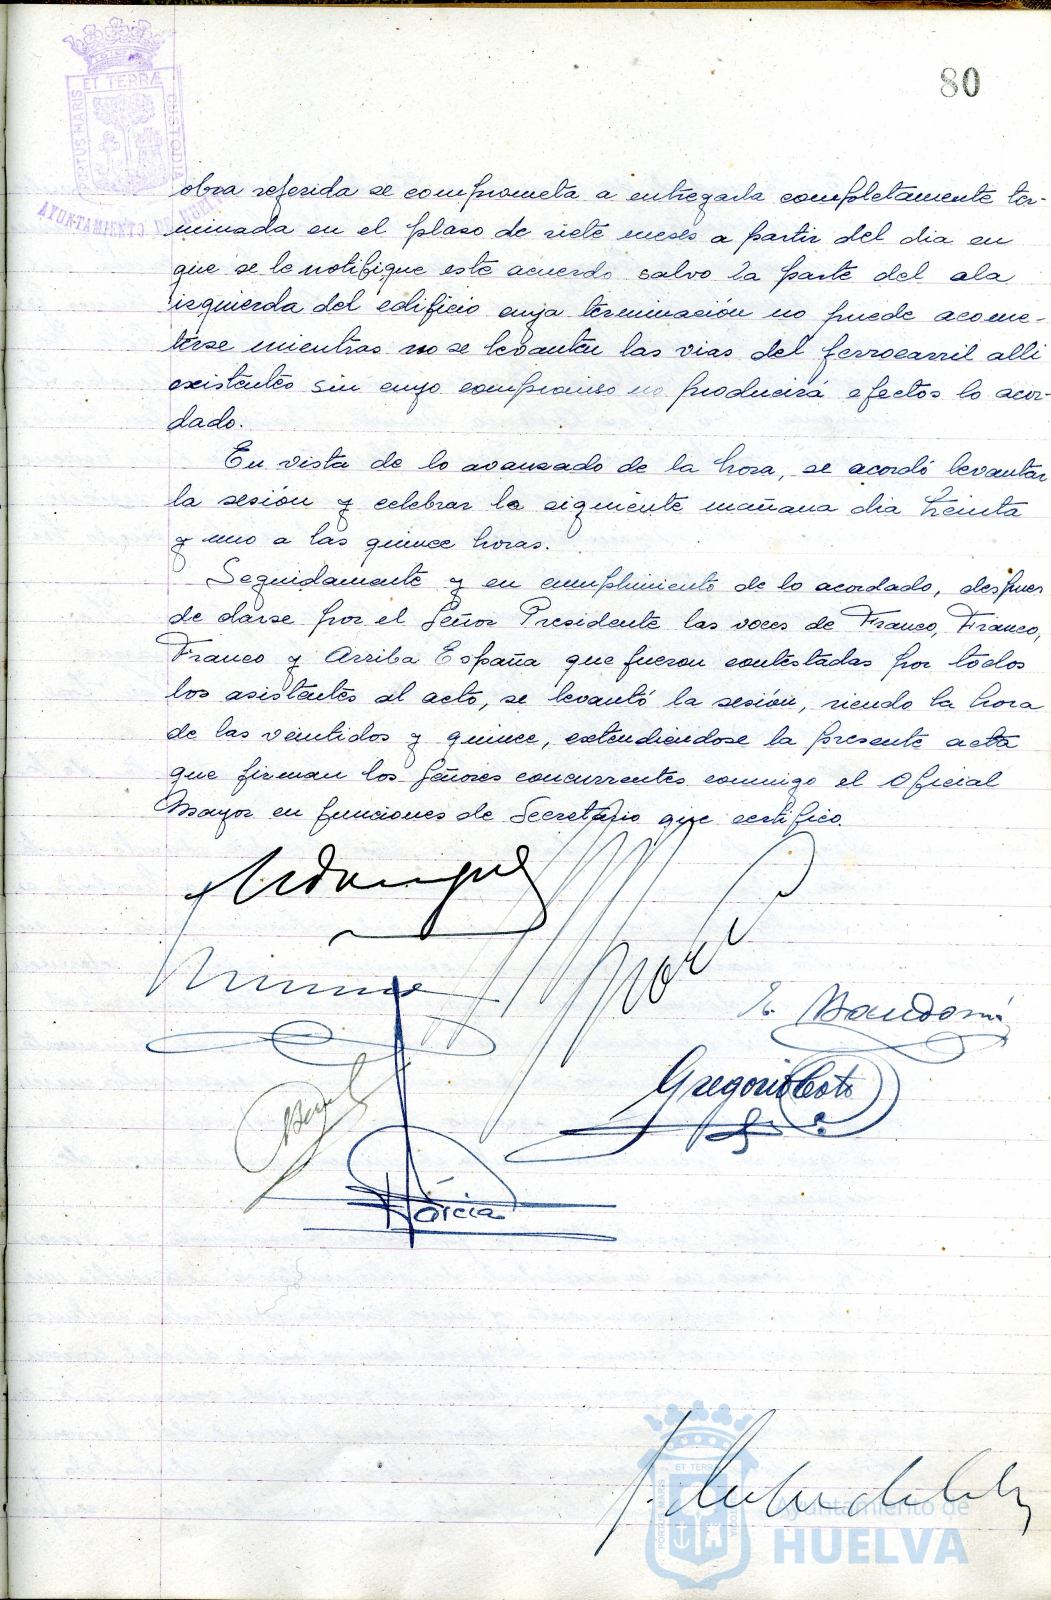 80
PORTUS MARIS ET TERRÆ CUSTODIA
AYUNTAMIENTO DE HUELVA
obra referida se comprometa a entregarla completamente ter-
minada en el plaso de siete meses a partir del dia en
que se le notifique este acuerdo salvo la parte del ala
izquierda del edificio cuya terminación no puede acome-
terse mientras no se levanten las vias del ferrocarril alli
existentes sin cuyo compromiso no producirá efectos lo acor-
dado.
En vista de lo avanzado de la hora, se acordó levantar
la sesión y celebrar la siguiente mañana dia treinta
y uno a las quince horas.
Seguidamente y en cumplimiento de lo acordado, despues
de darse por el Señor Presidente las voces de Franco, Franco,
Franco y Arriba España que fueron contestadas por todos
los asistentes al acto, se levantó la sesión, siendo la hora
de las veintidos y quince, extendiendose la presente acta
que firman los Señores concurrentes conmigo el Oficial
Mayor en funciones de Secretario que certifico.
Gregorio Coto
García
PORTUS MARIS ET TERRÆ CUSTODIA
Ayuntamiento de
HUELVA